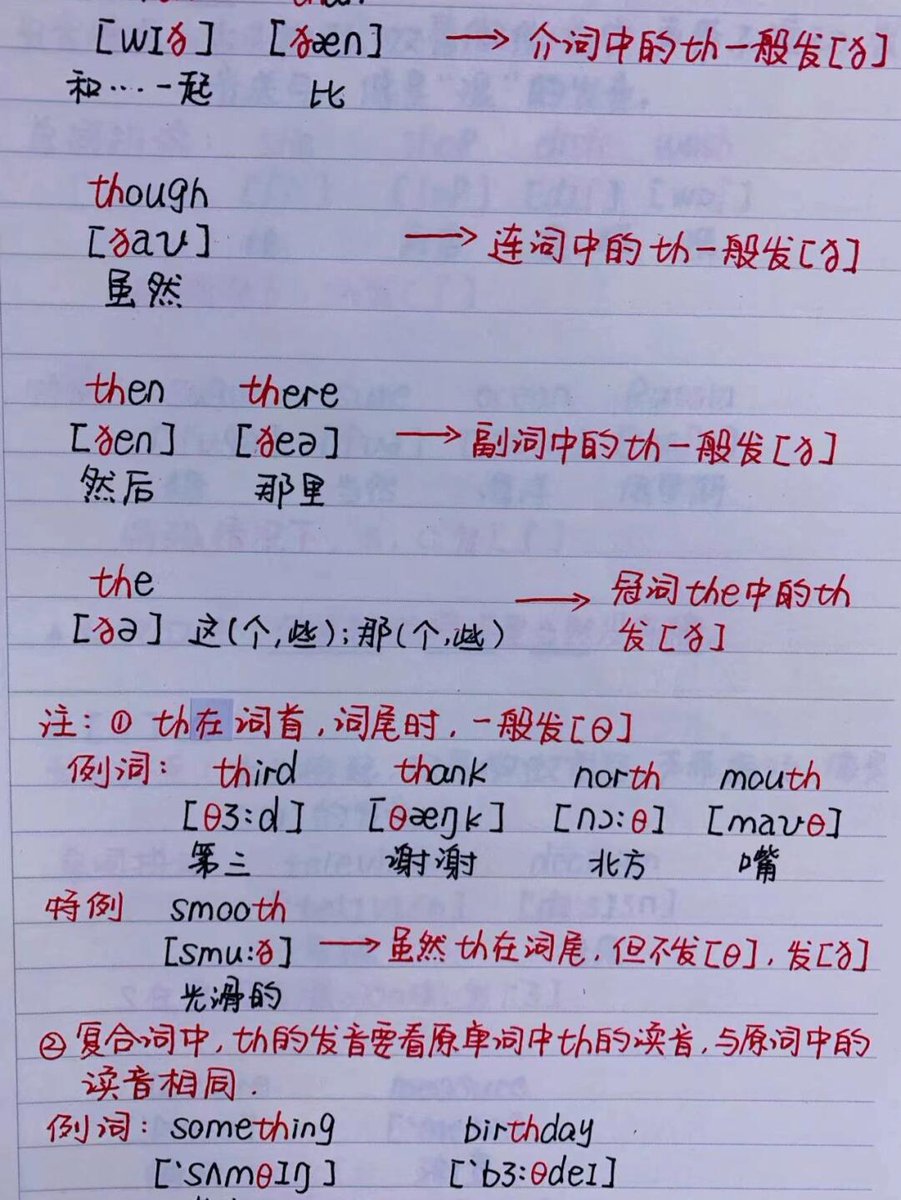 [wɪð] [ðæn] → 介词中的th一般发[ð]
和····一起 比
though
[ðaʊ] → 连词中的th一般发[ð]
虽然
then there
[ðen] [ðeə] → 副词中的th一般发[ð]
然后 那里
the → 冠词the中的th
[ðə] 这(个,些);那(个,些) 发[ð]
注:① th在词首,词尾时,一般发[θ]
例词: third thank north mouth
[θɜ:d] [θæŋk] [nɔ:θ] [maʊθ]
第三 谢谢 北方 嘴
特例 smooth
[smu:ð] → 虽然th在词尾,但不发[θ],发[ð]
光滑的
② 复合词中,th的发音要看原单词中th的读音,与原词中的
读音相同.
例词: something birthday
[ˈsʌmθɪŋ] [ˈbɜ:θdeɪ]